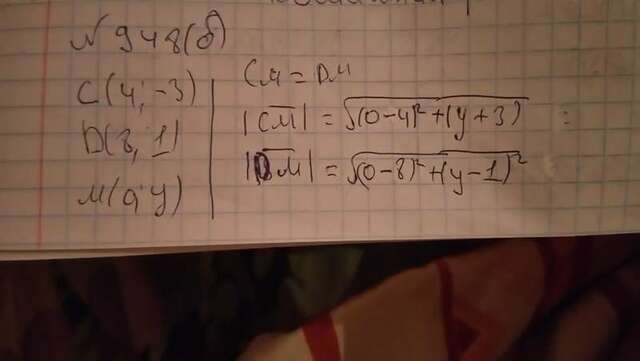 N948(б)
C(4; -3)
D(8; 1)
M(0; y)
CM = DM
|CM| = √(0-4)²+(y+3) =
|DM| = √(0-8)²+(y-1)²